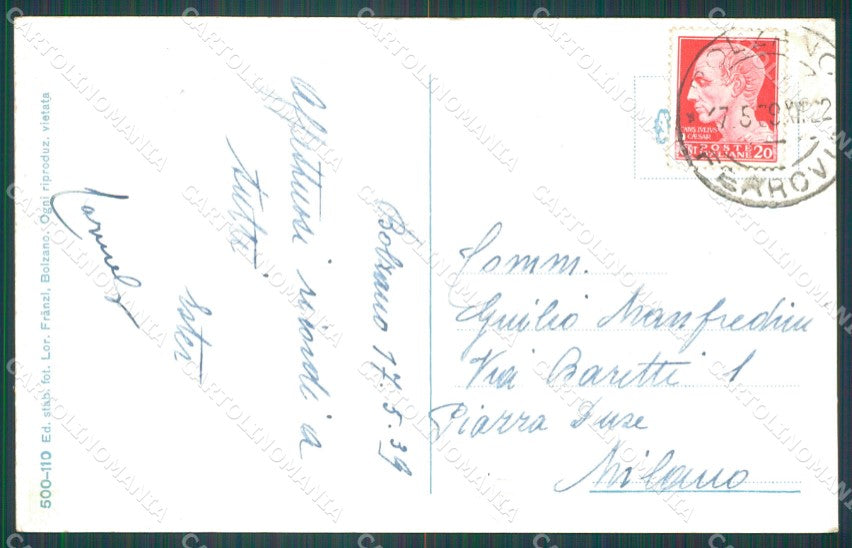 500–110 Ed. stab. fot. Lor. Fränzl, Bolzano. Ogni riproduz. vietata
Bolzano 17.5.39
Affettuosi ricordi a
tutti
Ester
CAIVS IVLIVS
CAESAR
POSTE
ITALIANE 20
17.5.39.XVII 22
FERROVI
Comm.
Guilio Manfredini
Via Baretti 1
Piazza Duse
Milano
CARTOLINOMANIA